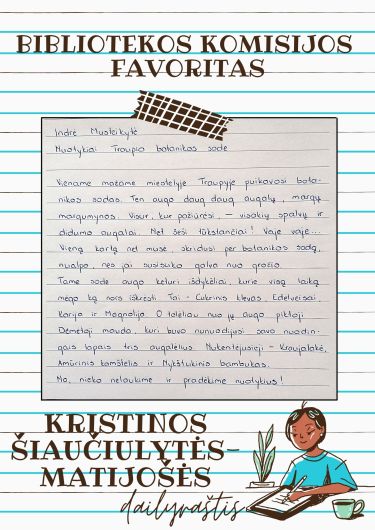 BIBLIOTEKOS KOMISIJOS
FAVORITAS
Indrė Musteikytė
Nuotykiai Troupio botanikos sode
Viename mažame miestelyje Traupyje puikavosi bota-
nikos sodas. Ten augo daug daug augalų, margų
margumynos. Visur, kur pažiūrėsi, – visokių spalvų ir
didumo augalai. Net šeši tūkstančiai! Vaje vaje...
Vieną kartą net musė, skridusi per botanikos sodą,
nualpo, nes jai susisuko galva nuo grožio.
Tame sode augo keturi išdykėliai, kurie visą laiką
mėgo ką nors iškrėsti. Tai – Cukrinis klevas, Edelveisai,
Karija ir Magnolija. O toliau nuo jų augo piktoji
Dėmėtoji mauda, kuri buvo nunuodijusi savo nuodin-
gais lapais tris augalėlius. Nukentėjusieji – Kraujalakė,
Amūrinis kamštelis ir Nykštukinis bambukas.
Na, nieko nelaukime ir pradėkime nuotykius!
KRISTINOS
ŠIAUČIULYTĖS-
MATIJOŠĖS
dailyraštis